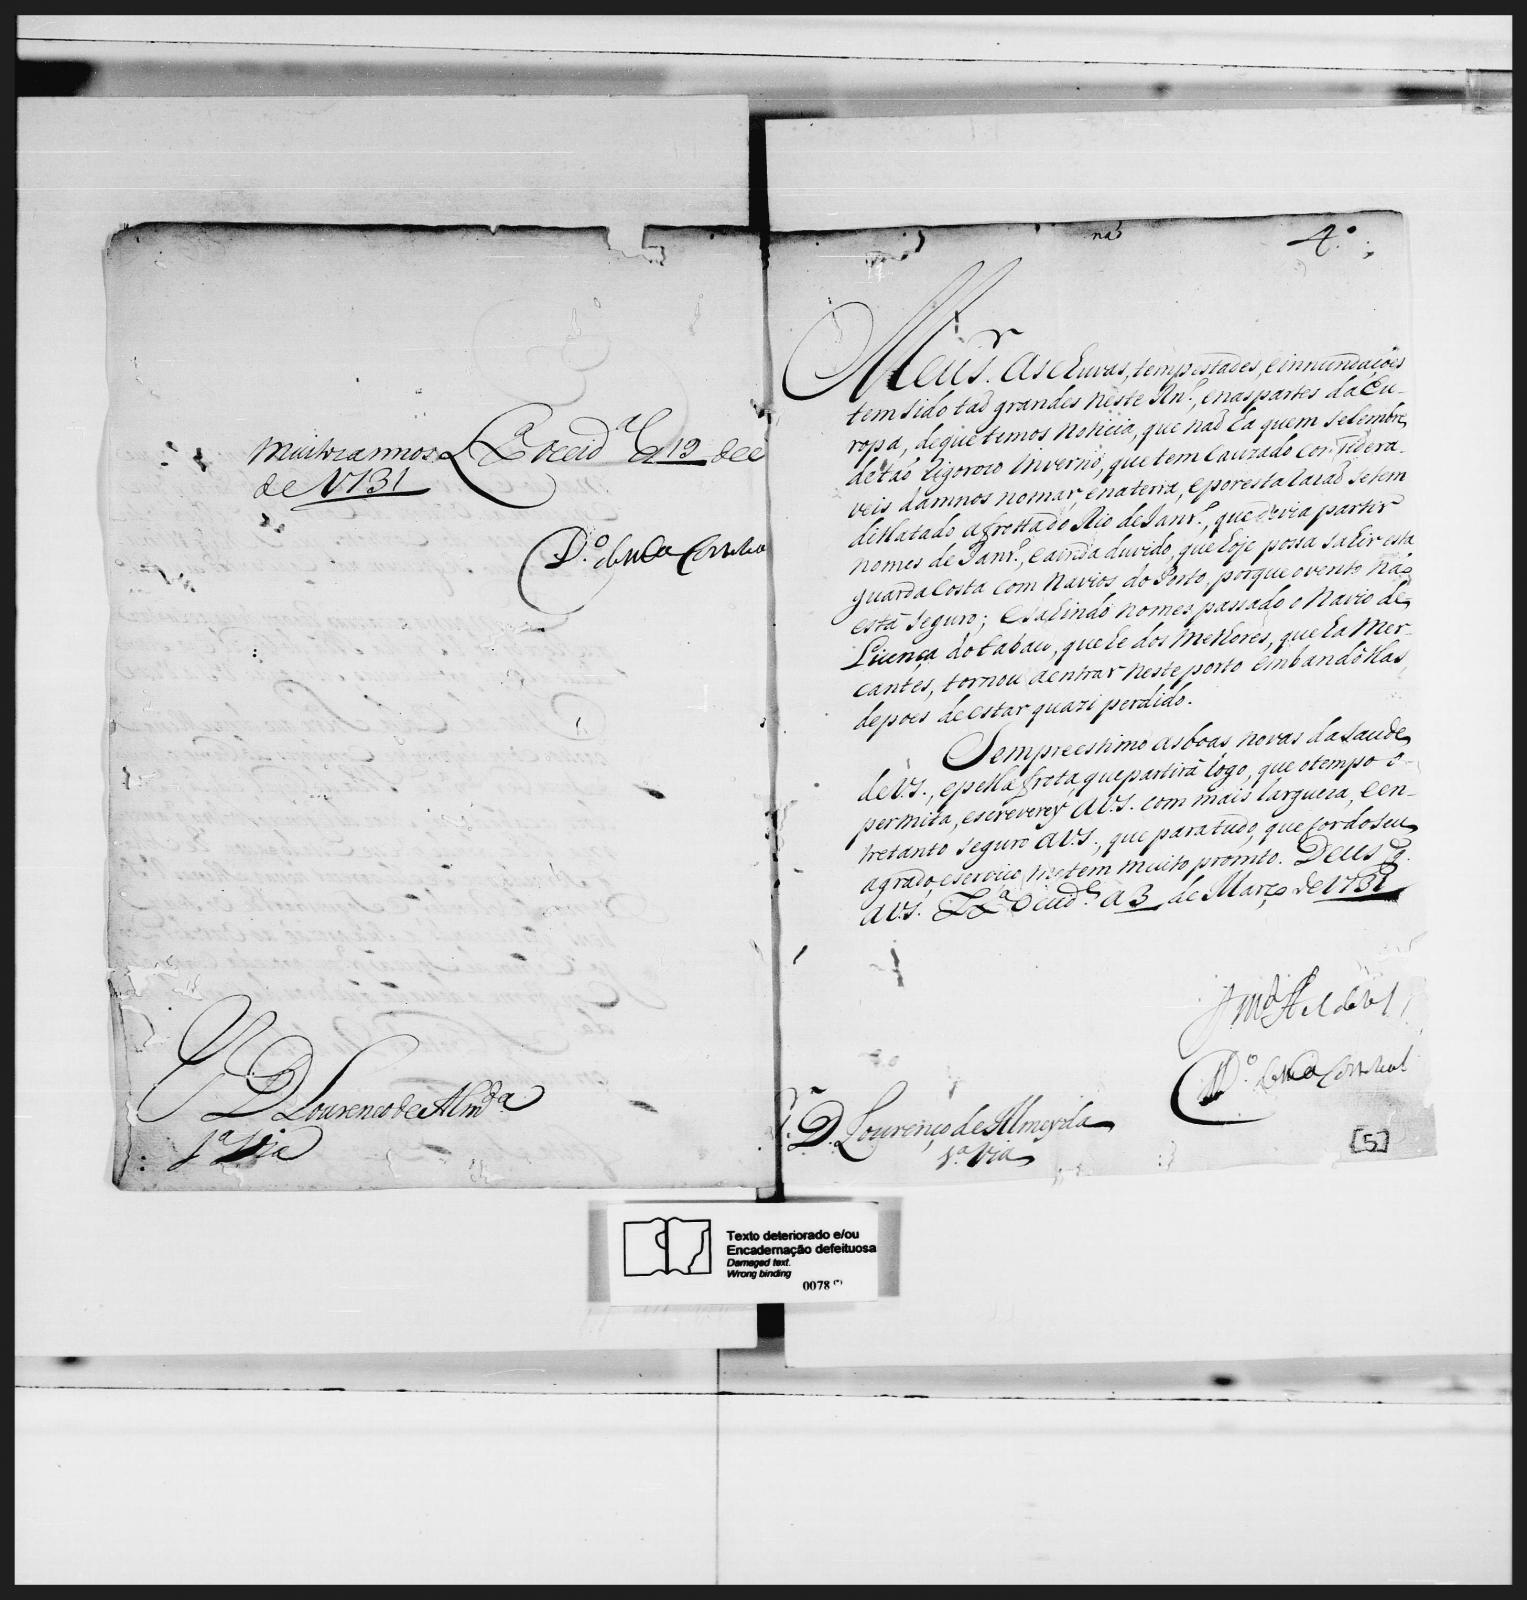 muitos annos. Lx.ª Occid.ªl a 19 de
de 1731
D.º de M.ça Corte Real
D Lourenço de Almd.ª
1.ª Via
4.º
Meu S.r As chuvas, tempestades, e innundações
tem sido taõ grandes neste Inv.º, e nas partes da Eu-
ropa, de que temos noticia, que naõ ha quem se lembre
de taõ rigorozo Inverno, que tem cauzado considera-
veis damnos no mar, e na terra, e por esta razaõ se tem
dilatado a frotta do Rio de Janr.º, que devia partir
no mes de Janr.º, e ainda duvido, que hoje possa sahir esta
guarda Costa com Navios do Porto, porque o vento naõ
está seguro; e sahindo no mes passado o Navio de
Licença do tabaco, que he dos melhores, que ha Mer-
cantes, tornou a entrar neste porto embandolhas,
depois de estar quazi perdido.
Sempre estimo as boas novas da saude
de V.S., e pella frota, que partirá logo, que o tempo o
permita, escreverey a V.S. com mais largueza, e en-
tretanto seguro a V.S., que para tudo, que for do seu
agrado, e serviço me tem muito promto. Deus g.de
a V.S. Lx.ª Occid.al a 3 de Março de 1731
D.º de M.ça Corte Real
S.r D. Lourenço de Almeyda
1.ª Via
[5]
Texto deteriorado e/ou
Encadernação defeituosa
Damaged text.
Wrong binding
0078 (*)